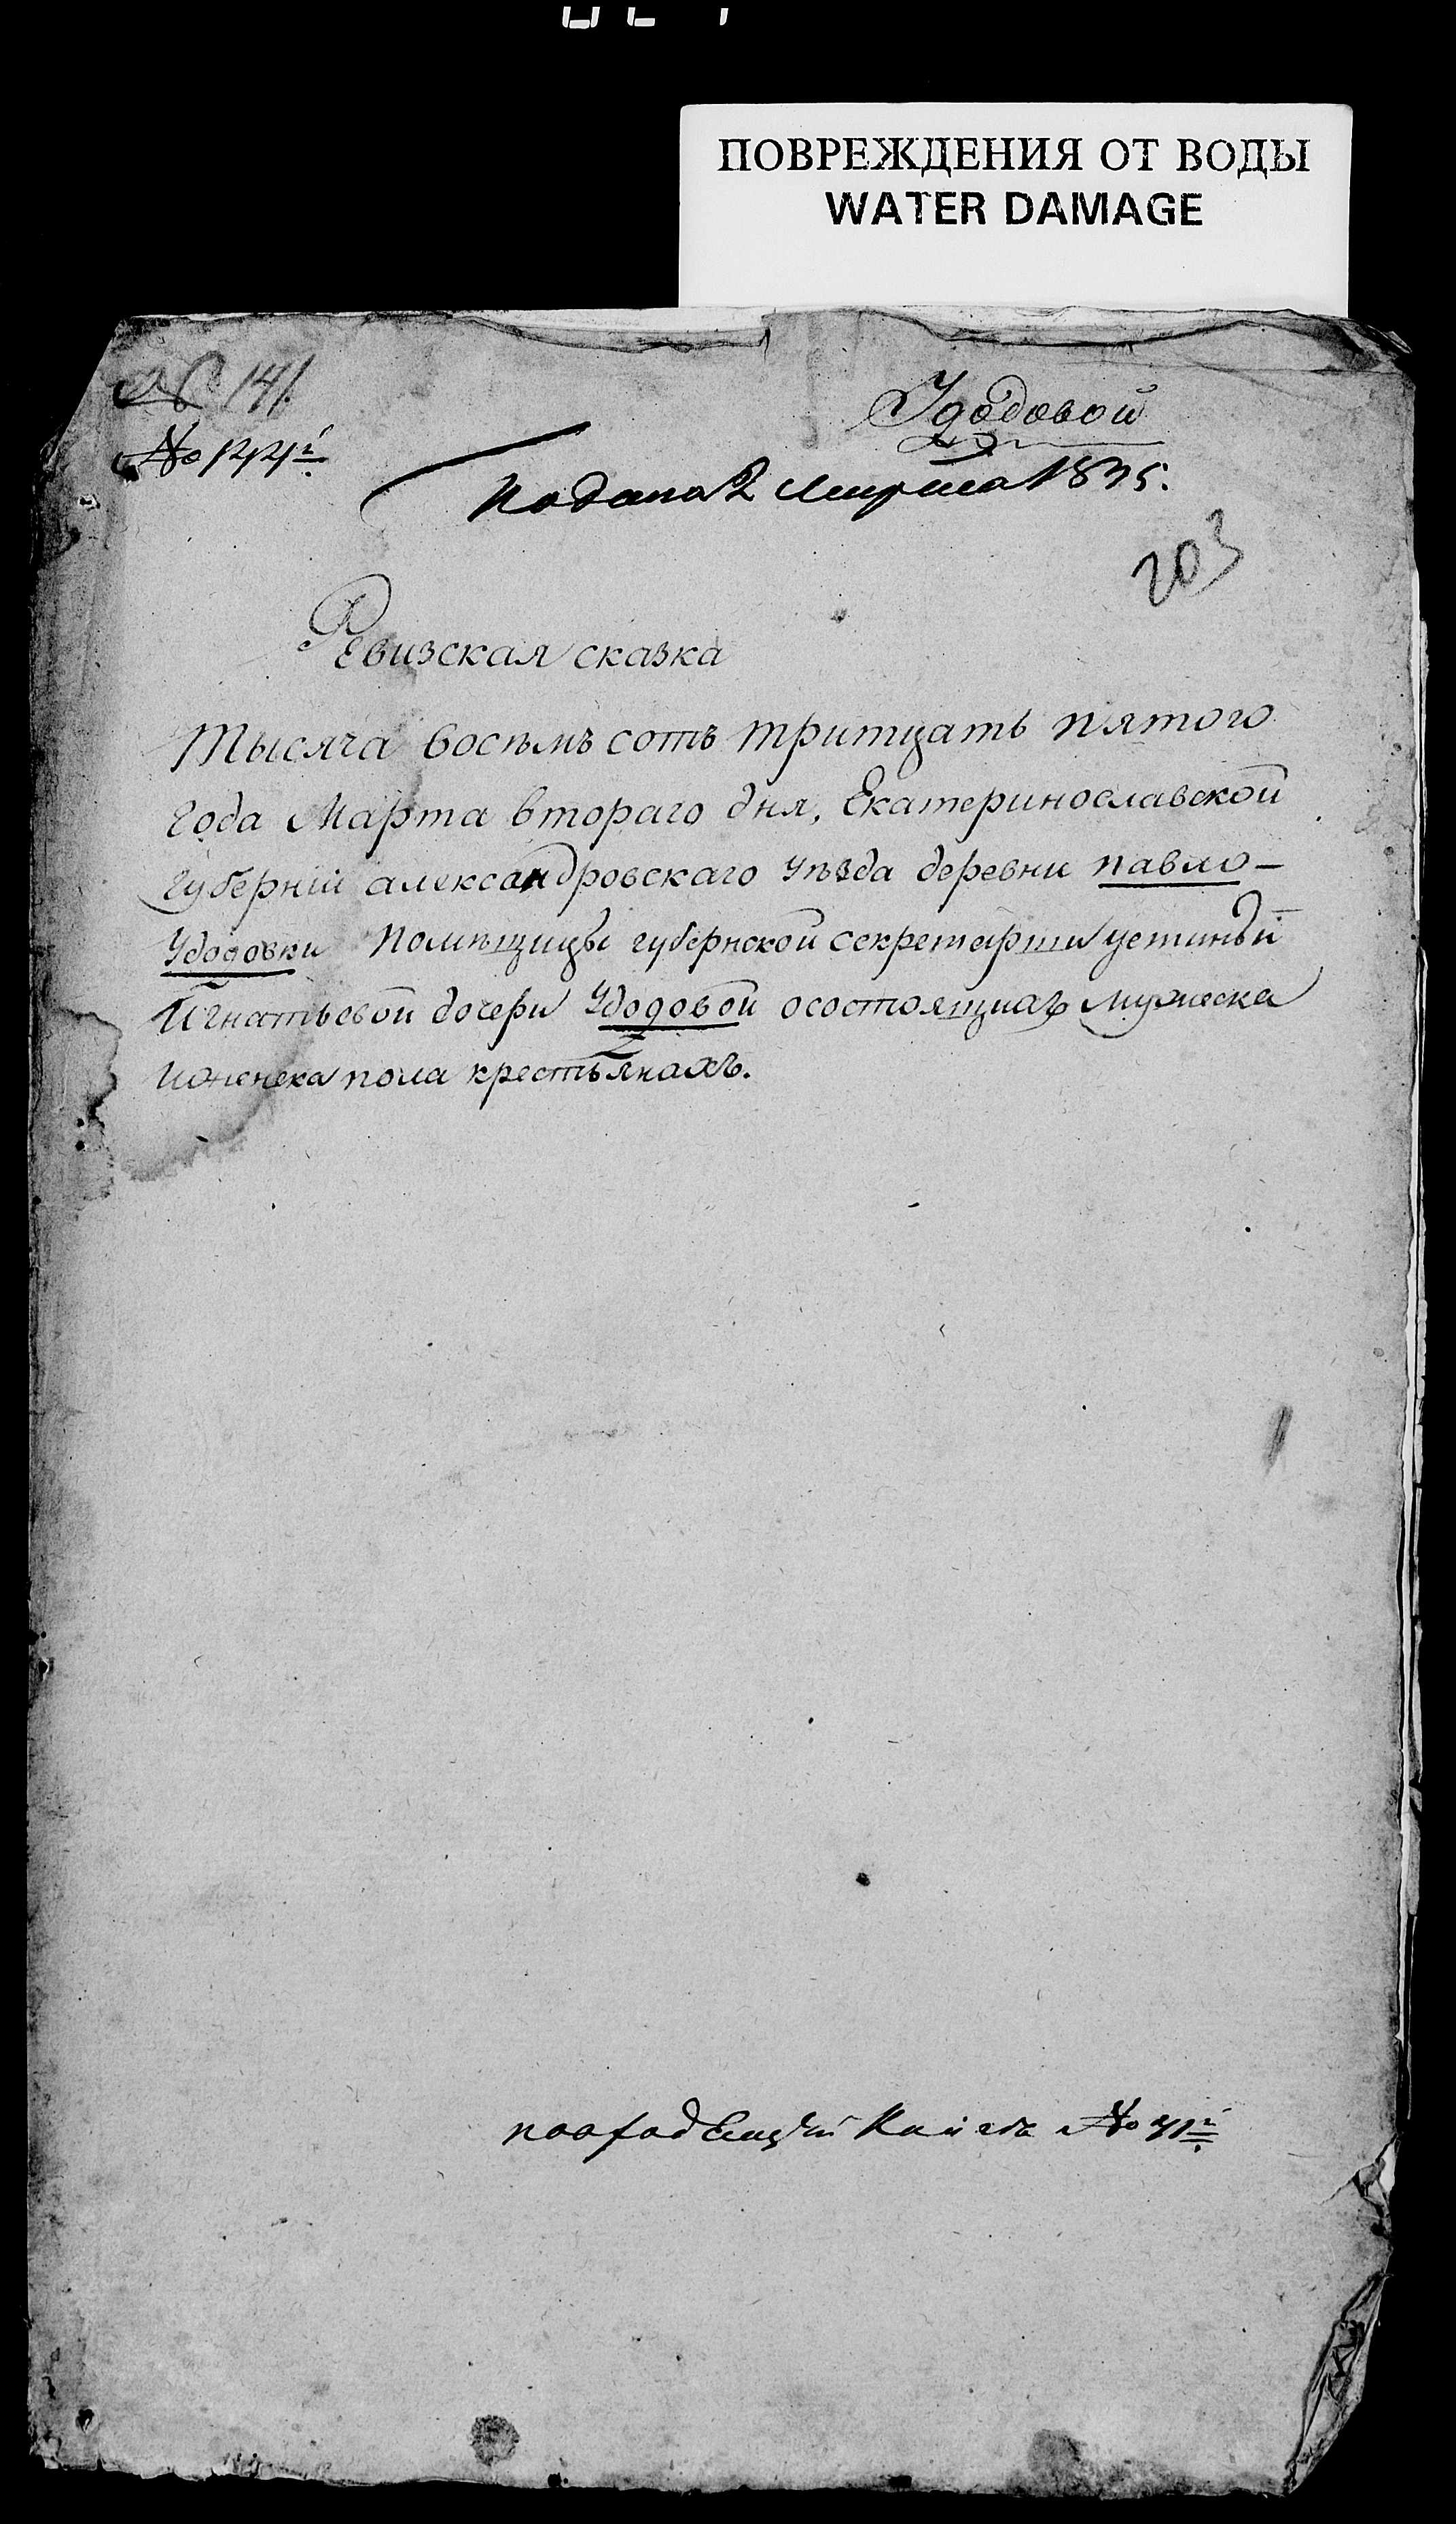 ПОВРЕЖДЕНИЯ ОТ ВОДЫ
WATER DAMAGE
№ 141.
Удодовой
Подана 2 Марта 1835.
203
Ревизская сказка
Тысяча восѣмъ сотъ тритцать пятого
года Марта втораго дня, Екатеринославской
губернїи александровскаго уѣзда деревни павло-
Удодовки Помѣщицы губернской секретарши устиньи
Игнатьевой дочери Удодовой осостоящихъ мужеска
ионенска пола крестьянахъ.
№ 41